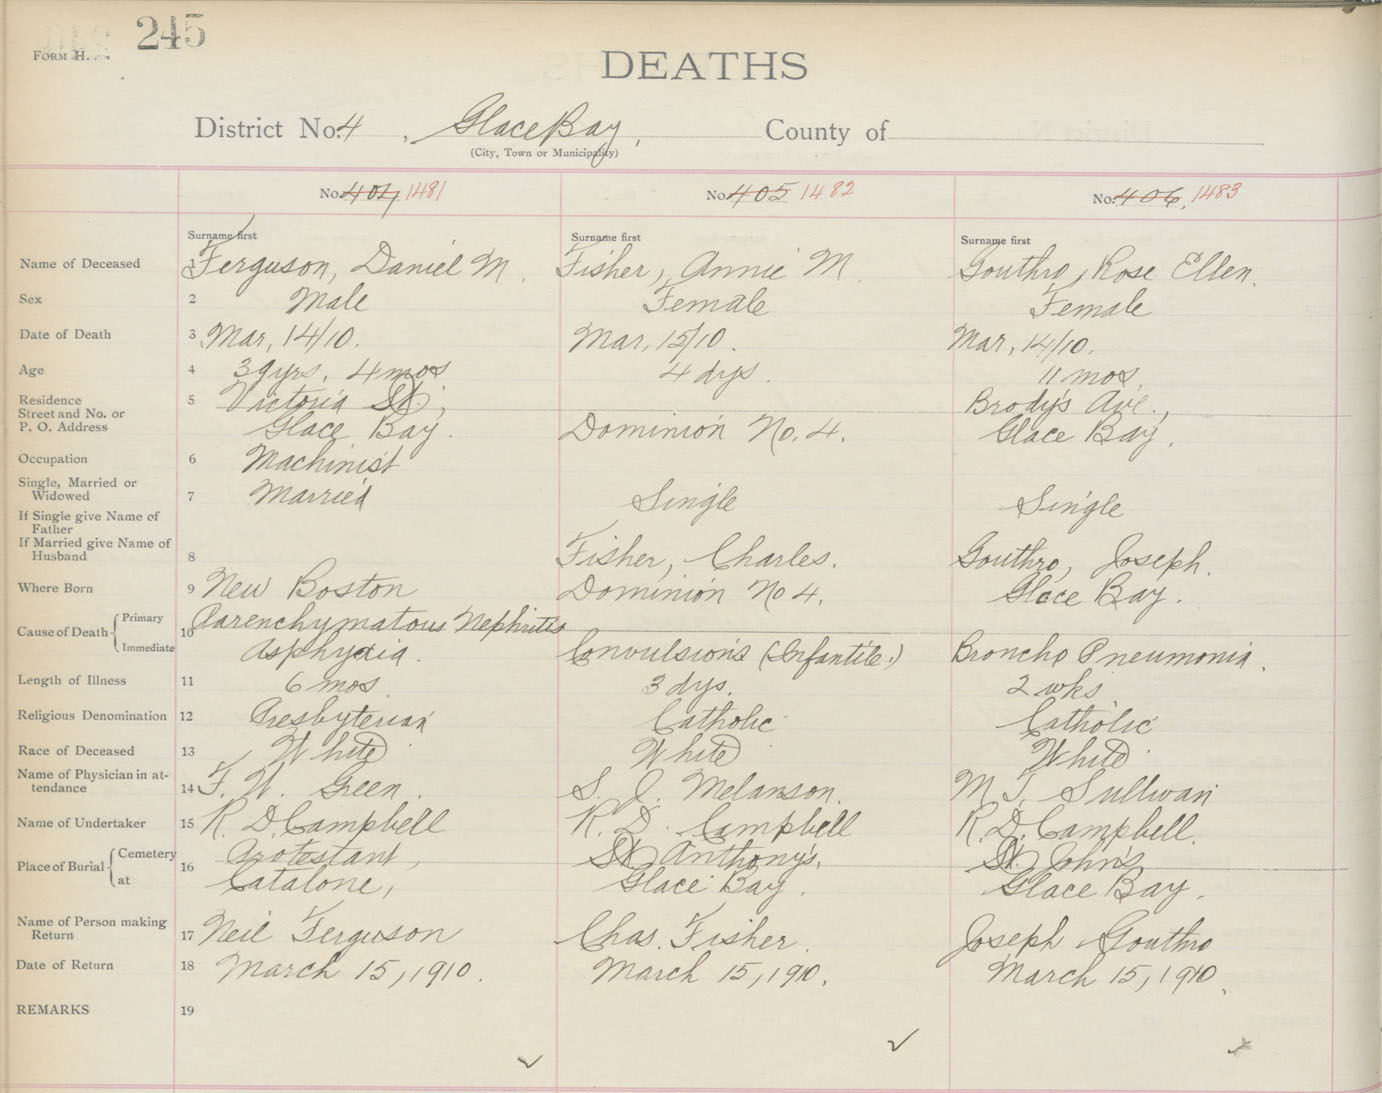 245
FORM H.
DEATHS
District No. 4, Glace Bay, County of
(City, Town or Municipality)
No. 404 1481 No. 405 1482 No. 406, 1483
Surname first Surname first Surname first
Name of Deceased 1 Ferguson, Daniel M. Fisher, Annie M. Gouthro, Rose Ellen.
Sex 2 Male Female Female
Date of Death 3 Mar, 14/10. Mar, 15/10. Mar, 14/10.
Age 4 39 yrs, 4 mos 4 dys. 11 mos.
Residence 5 Victoria St., Brody's Ave.,
Street and No. or
P. O. Address Glace Bay. Dominion No. 4. Glace Bay.
Occupation 6 Machinist
Single, Married or
Widowed 7 Married Single Single
If Single give Name of
Father
If Married give Name of
Husband 8 Fisher, Charles. Gouthro, Joseph.
Where Born 9 New Boston Dominion No 4. Glace Bay.
Cause of Death Primary 10 Parenchymatous Nephritis
Immediate Asphyxia. Convulsions (Infantile.) Broncho Pneumonia.
Length of Illness 11 6 mos 3 dys. 2 wks
Religious Denomination 12 Presbyterian Catholic Catholic
Race of Deceased 13 White White White
Name of Physician in at-
tendance 14 F. W. Green. S. J. Melanson. M. T. Sullivan
Name of Undertaker 15 R. D. Campbell R. D. Campbell R. D. Campbell.
Place of Burial Cemetery 16 Protestant, St Anthony's, St John's
at Catalone, Glace Bay. Glace Bay.
Name of Person making
Return 17 Neil Ferguson Chas. Fisher. Joseph Gouthro
Date of Return 18 March 15, 1910. March 15, 1910. March 15, 1910.
REMARKS 19